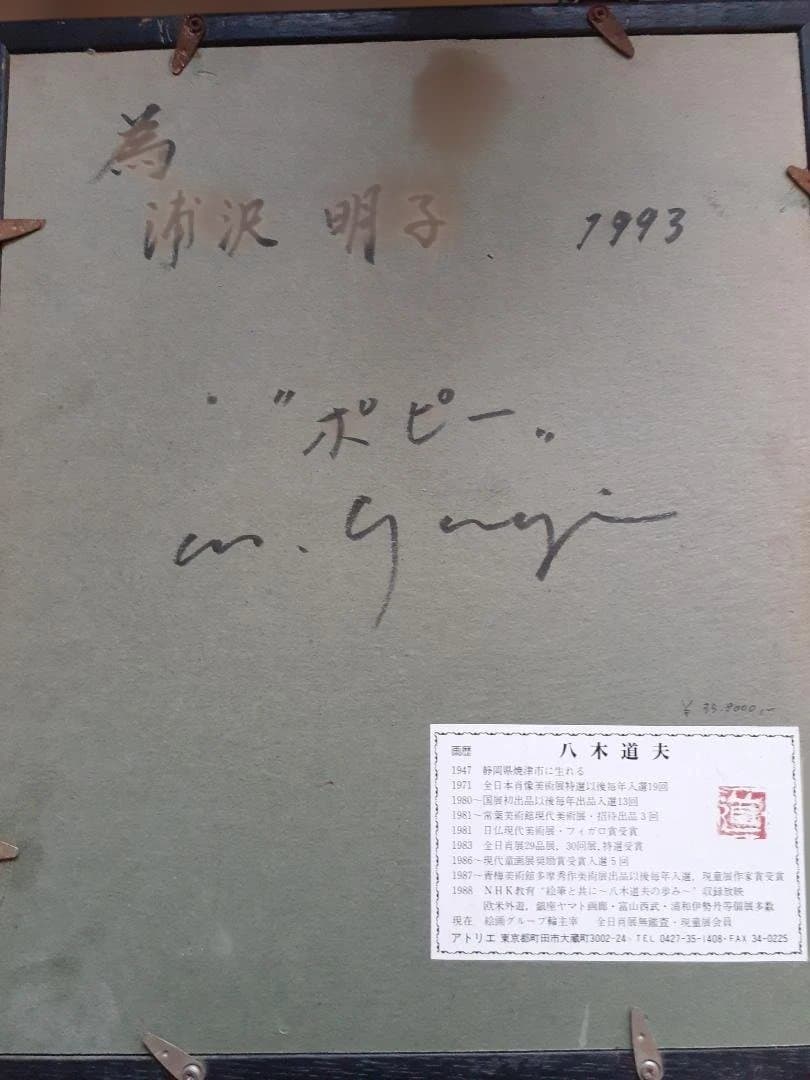 為
浦沢 明子 1993
"ポピー"
m. Yagi
¥ 33.9000,-
画歴 八木道夫
1947 静岡県焼津市に生れる
1971 全日本肖像美術展特選以後毎年入選19回
1980~国展初出品以後毎年出品入選13回
1981~常葉美術館現代美術展・招待出品3回
1981 日仏現代美術展・フィガロ賞受賞
1983 全日肖展29品展, 30回展, 特選受賞
1986~現代童画展奨励賞受賞入選5回
1987~青梅美術館多摩秀作美術展出品以後毎年入選, 現童展作家賞受賞
1988 NHK教育"絵筆と共に~八木道夫の歩み~"収録放映
欧米外遊, 銀座ヤマト画廊・富山西武・浦和伊勢丹等個展多数
現在 絵画グループ輪主宰 全日肖展無鑑査・現童展会員
アトリエ 東京都町田市大蔵町3002-24 TEL 0427-35-1408・FAX 34-0225
道